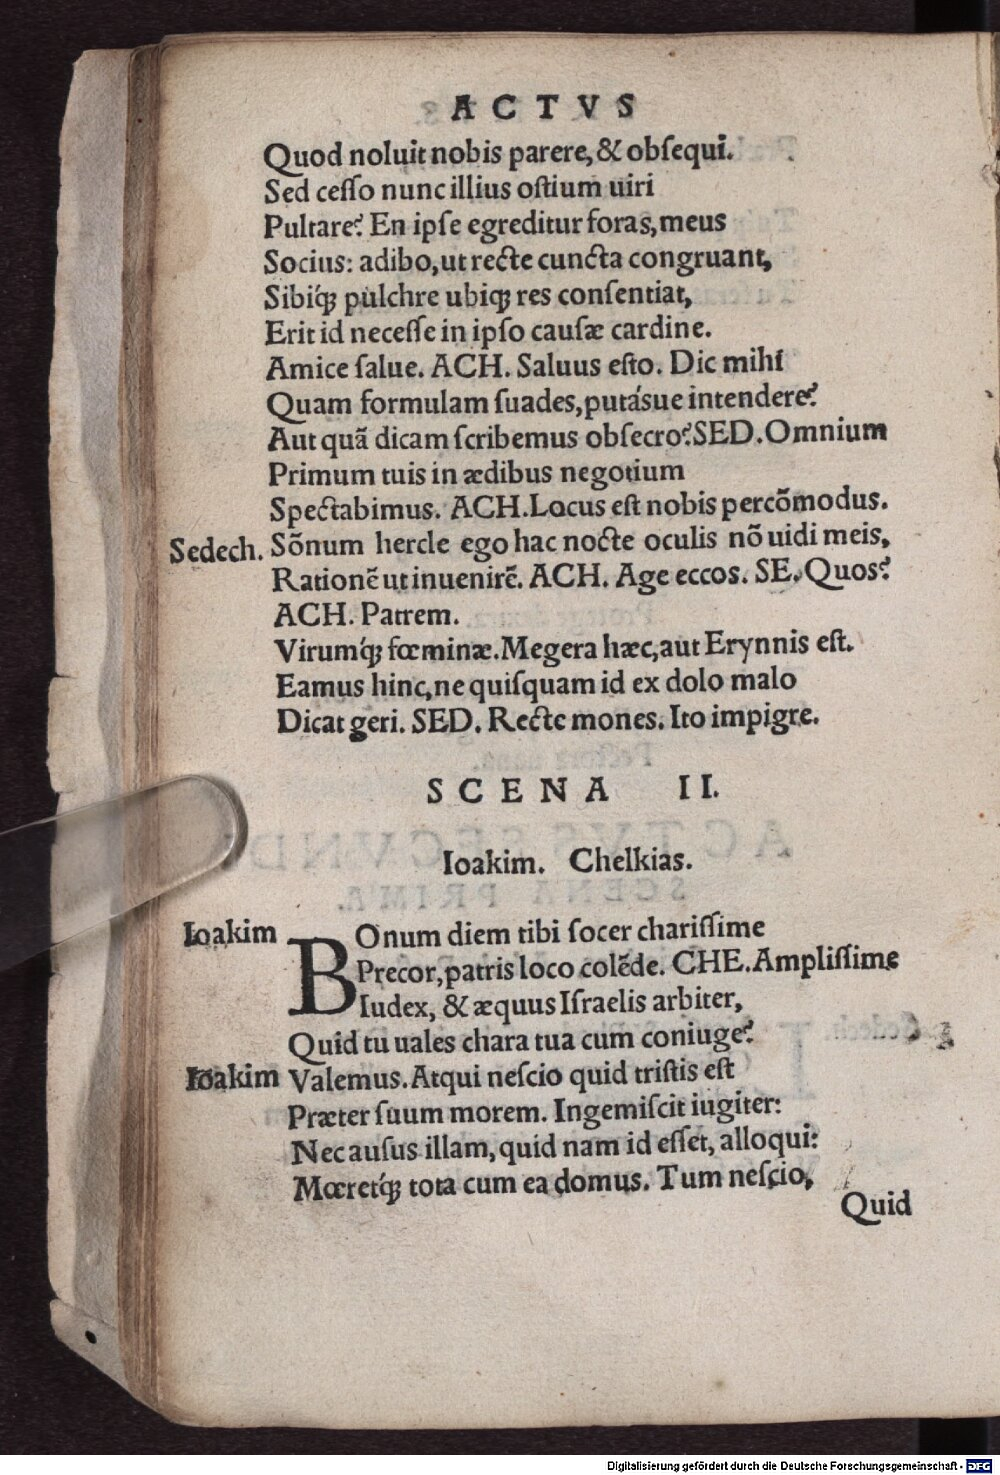 ACTVS
Quod noluit nobis parere, & obſequi.
Sed ceſſo nunc illius oſtium uiri
Pultare? En ipſe egreditur foras, meus
Socius: adibo, ut recte cuncta congruant,
Sibiq́ꝫ pulchre ubiqꝫ res conſentiat,
Erit id neceſſe in ipſo cauſæ cardine.
Amice ſalue. ACH. Saluus eſto. Dic mihi
Quam formulam ſuades, putásue intendere?
Aut quã dicam ſcribemus obſecro? SED. Omnium
Primum tuis in ædibus negotium
Spectabimus. ACH. Locus eſt nobis percõmodus.
Sedech. Sõnum hercle ego hac nocte oculis nõ uidi meis,
Rationẽ ut inuenirẽ. ACH. Age eccos. SE. Quos?
ACH. Patrem.
Virumq́ꝫ fœminæ. Megera hæc, aut Erynnis eſt.
Eamus hinc, ne quiſquam id ex dolo malo
Dicat geri. SED. Recte mones. Ito impigre.
SCENA II.
Ioakim. Chelkias.
Ioakim BOnum diem tibi ſocer chariſſime
Precor, patris loco colẽde. CHE. Ampliſſime
Iudex, & æquus Iſraelis arbiter,
Quid tu uales chara tua cum coniuge?
Ioakim Valemus. Atqui neſcio quid triſtis eſt
Præter ſuum morem. Ingemiſcit iugiter:
Nec auſus illam, quid nam id eſſet, alloqui:
Mœretq́ꝫ tota cum ea domus. Tum neſcio,
Quid
Digitalisierung gefördert durch die Deutsche Forschungsgemeinschaft - DFG